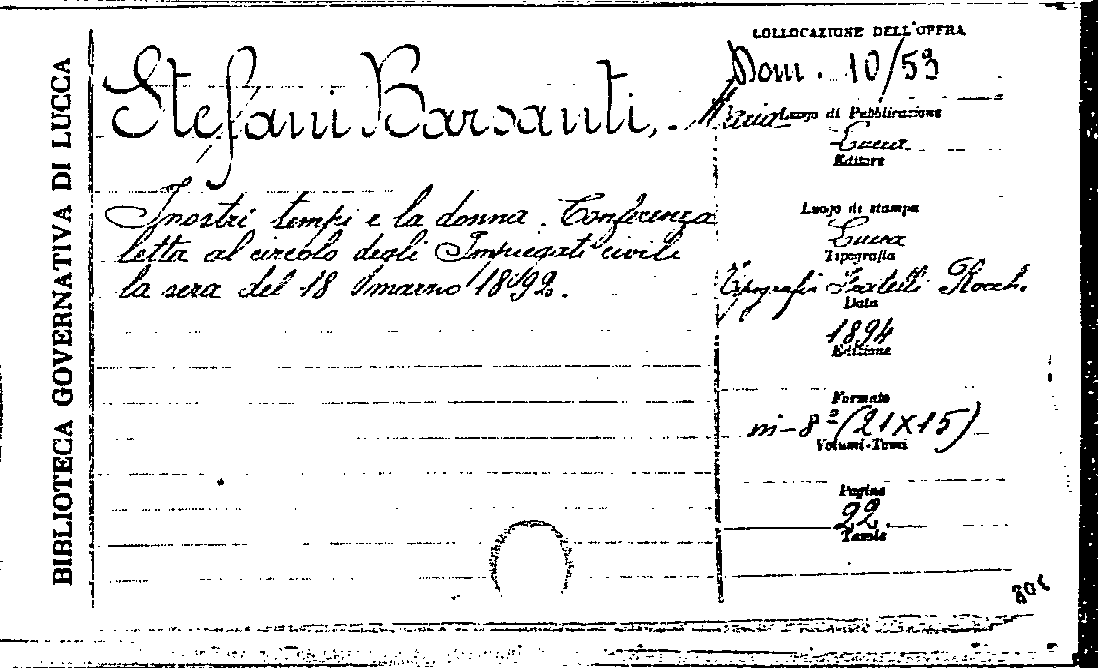 BIBLIOTECA GOVERNATIVA DI LUCCA
Stefani Barsanti, Maria
I nostri tempi e la donna. Conferenza
letta al circolo degli Impiegati civili
la sera del 18 marzo 1892.
COLLOCAZIONE DELL'OPERA
Dom. 10/53
Luogo di Pubblicazione
Lucca
Editore
Luogo di stampa
Lucca
Tipografia
Tipografia Fratelli Rocchi
Data
1894
Edizione
Formato
in-8º (21X15)
Volumi-Tomi
Pagine
22
Tavole